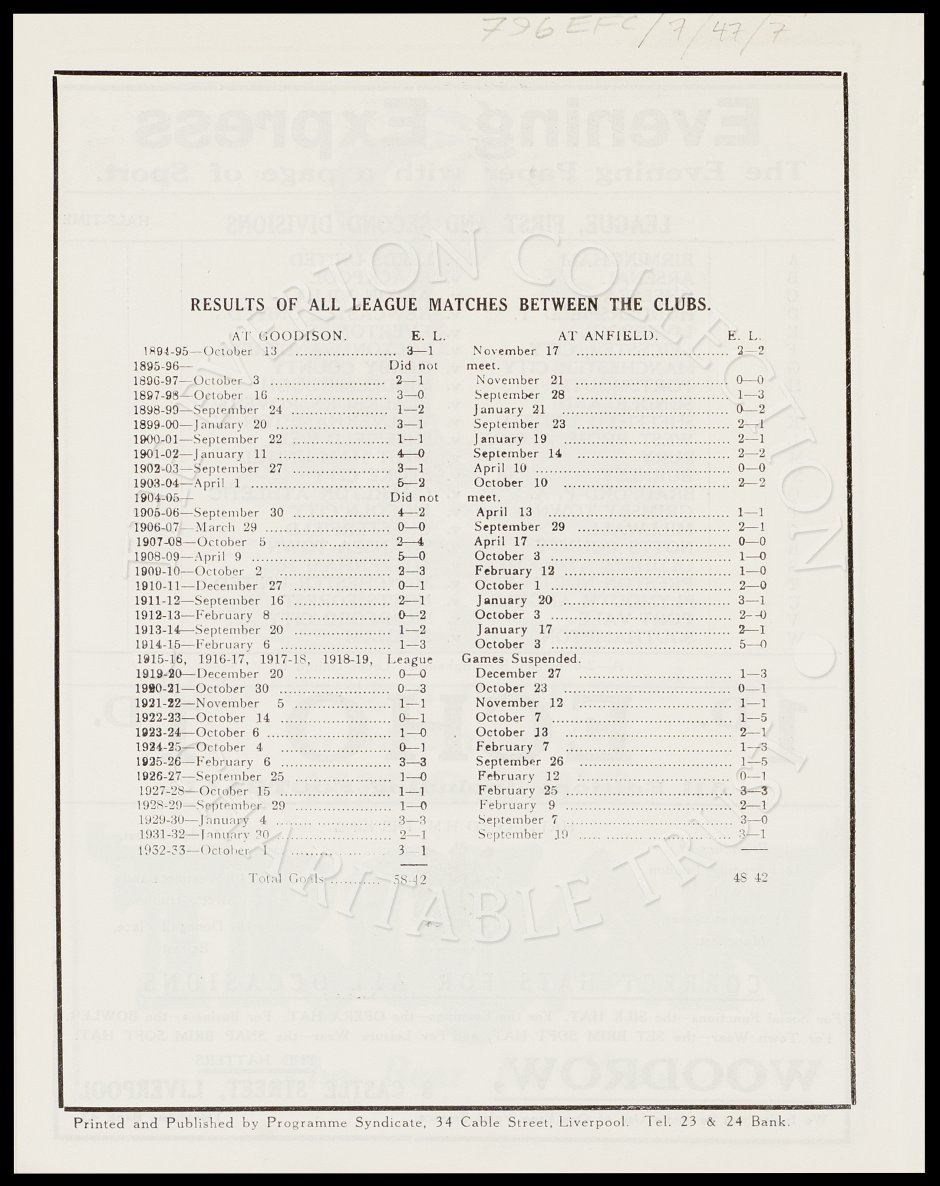 796 EFC/7/47/7
RESULTS OF ALL LEAGUE MATCHES BETWEEN THE CLUBS.
AT GOODISON. E. L. AT ANFIELD. E. L.
1894-95—October 13 ...................... 3—1 November 17 .............................. 2—2
1895-96— Did not meet.
1896-97—October 3 ....................... 2—1 November 21 .............................. 0—0
1897-98—October 16 ...................... 3—0 September 28 .............................. 1—3
1898-99—September 24 ................... 1—2 January 21 ................................. 0—2
1899-00—January 20 ...................... 3—1 September 23 .............................. 2—1
1900-01—September 22 ................... 1—1 January 19 ................................ 2—1
1901-02—January 11 ...................... 4—0 September 14 .............................. 2—2
1902-03—September 27 ................... 3—1 April 10 ...................................... 0—0
1903-04—April 1 ........................... 5—2 October 10 ................................. 2—2
1904-05— Did not meet.
1905-06—September 30 ................... 4—2 April 13 .................................... 1—1
1906-07—March 29 ......................... 0—0 September 29 .............................. 2—1
1907-08—October 5 ...................... 2—4 April 17 ....................................... 0—0
1908-09—April 9 ........................... 5—0 October 3 ................................... 1—0
1909-10—October 2 ...................... 2—3 February 12 ................................ 1—0
1910-11—December 27 ................... 0—1 October 1 ................................... 2—0
1911-12—September 16 ................... 2—1 January 20 ................................. 3—1
1912-13—February 8 ...................... 0—2 October 3 ................................... 2—0
1913-14—September 20 ................... 1—2 January 17 ................................. 2—1
1914-15—February 6 ...................... 1—3 October 3 ................................... 5—0
1915-16, 1916-17, 1917-18, 1918-19, League Games Suspended.
1919-20—December 20 ................... 0—0 December 27 .............................. 1—3
1920-21—October 30 ...................... 0—3 October 23 ................................ 0—1
1921-22—November 5 ................... 1—1 November 12 .............................. 1—1
1922-23—October 14 ...................... 0—1 October 7 ................................... 1—5
1923-24—October 6 ........................ 1—0 October 13 ................................ 2—1
1924-25—October 4 ...................... 0—1 February 7 ................................ 1—3
1925-26—February 6 ...................... 3—3 September 26 .............................. 1—5
1926-27—September 25 ................... 1—0 February 12 ............................... 0—1
1927-28—October 15 ...................... 1—1 February 25 ................................ 3—3
1928-29—September 29 ................... 1—0 February 9 ................................ 2—1
1929-30—January 4 ...................... 3—3 September 7 ................................ 3—0
1931-32—January 30 ...................... 2—1 September 19 .............................. 3—1
1932-33—October 1 ...................... 3—1
Total Goals ........... 58-42 48 42
Printed and Published by Programme Syndicate, 34 Cable Street, Liverpool. Tel. 23 & 24 Bank.
EVERTON COLLECTION
CHARITABLE TRUST